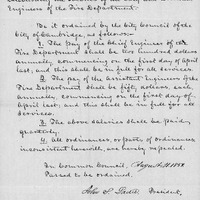 Engineers of the Fire Department.
Be it ordained by the City Council of the
City of Cambridge, as follows:
1. The pay of the Chief Engineer of the
Fire Department shall be one hundred dollars
annually, commencing on the first day of April
last, and this shall be in full for all services.
2. The pay of the Assistant Engineers of the
Fire Department shall be fifty dollars, each,
annually, commencing on the first day of
April last; and this shall be in full for all
services.
3. The above salaries shall be paid,
quarterly.
4. All ordinances, or parts of ordinances
inconsistent herewith, are hereby repealed.
In Common Council, August
Passed to be ordained.
John S. President.